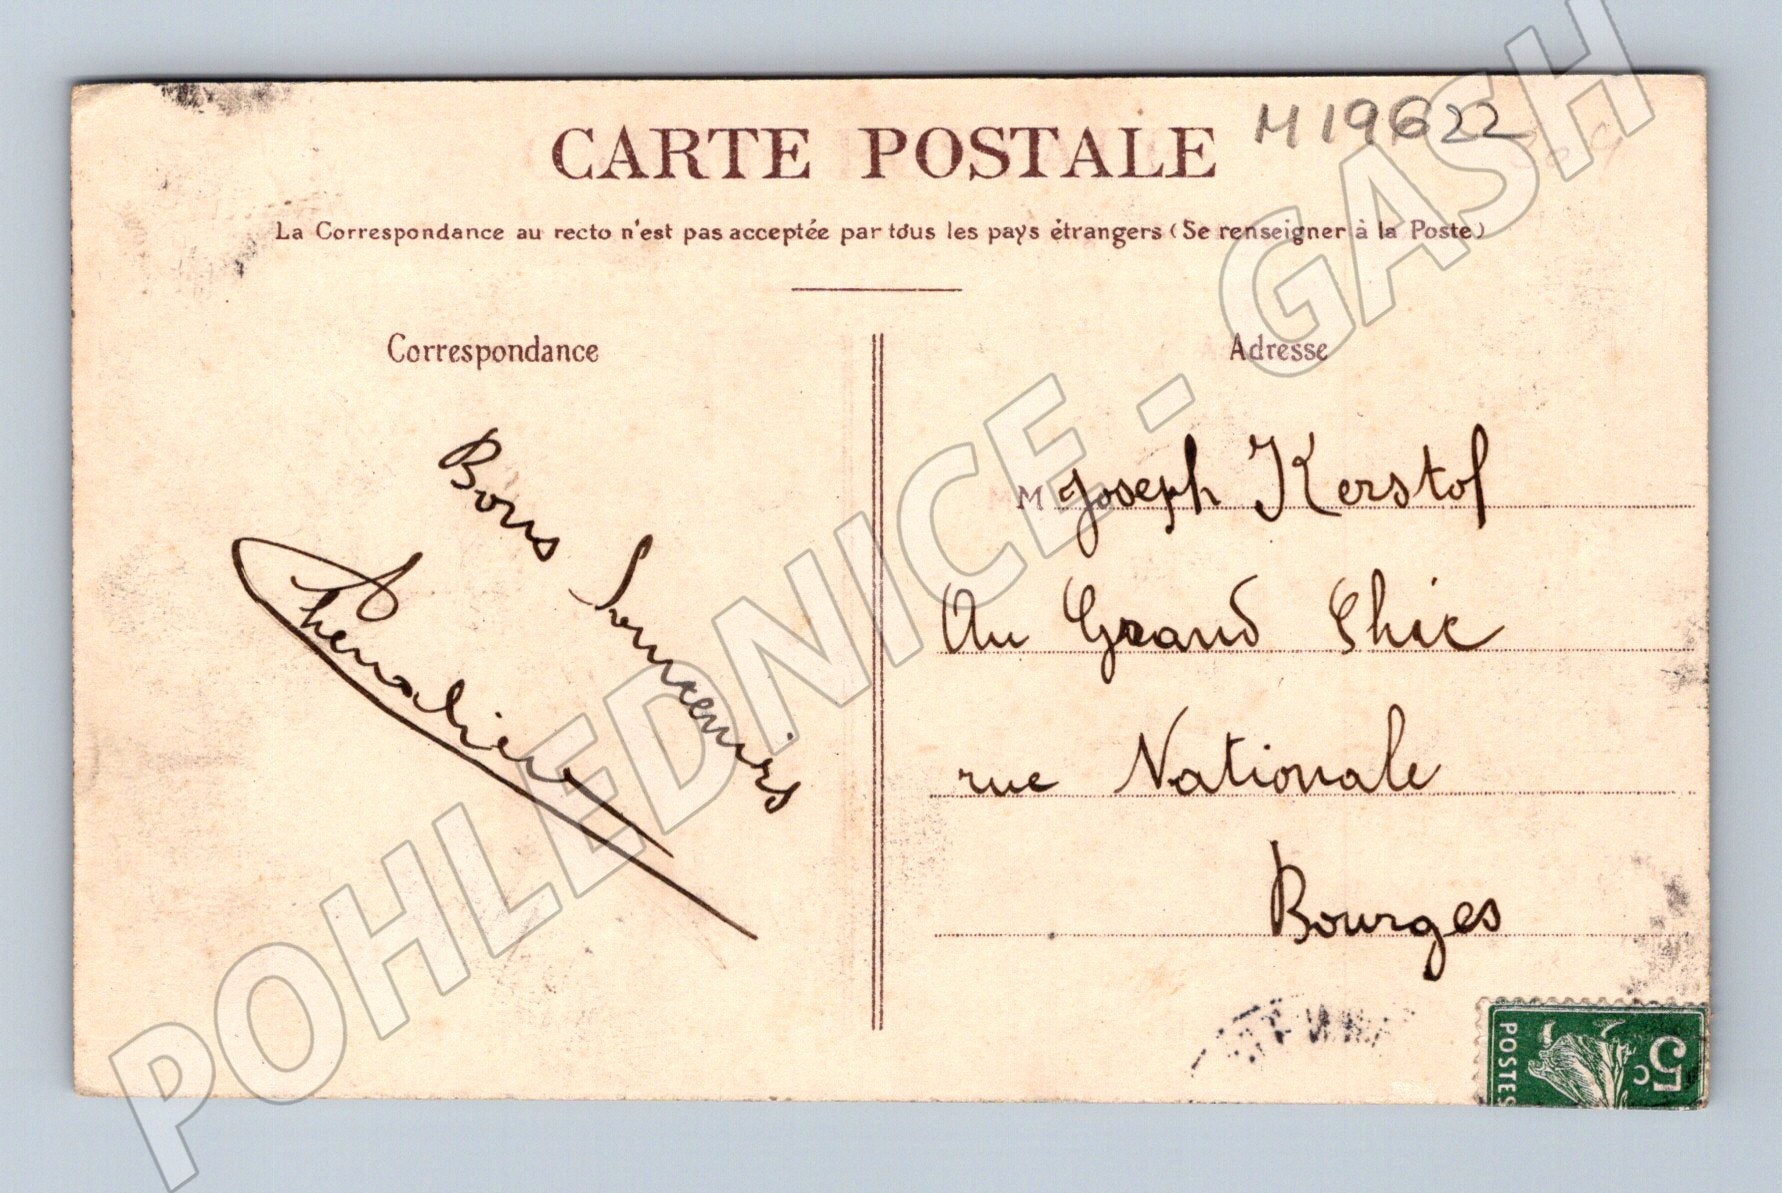 CARTE POSTALE
M19622
La Correspondance au recto n'est pas acceptée par tous les pays étrangers (Se renseigner à la Poste)
Correspondance
Bons Souvenirs
Adresse
M Joseph Kerstof
Au Grand Chic
rue Nationale
Bourges
POSTES
5c
POHLEDNICE - GASH